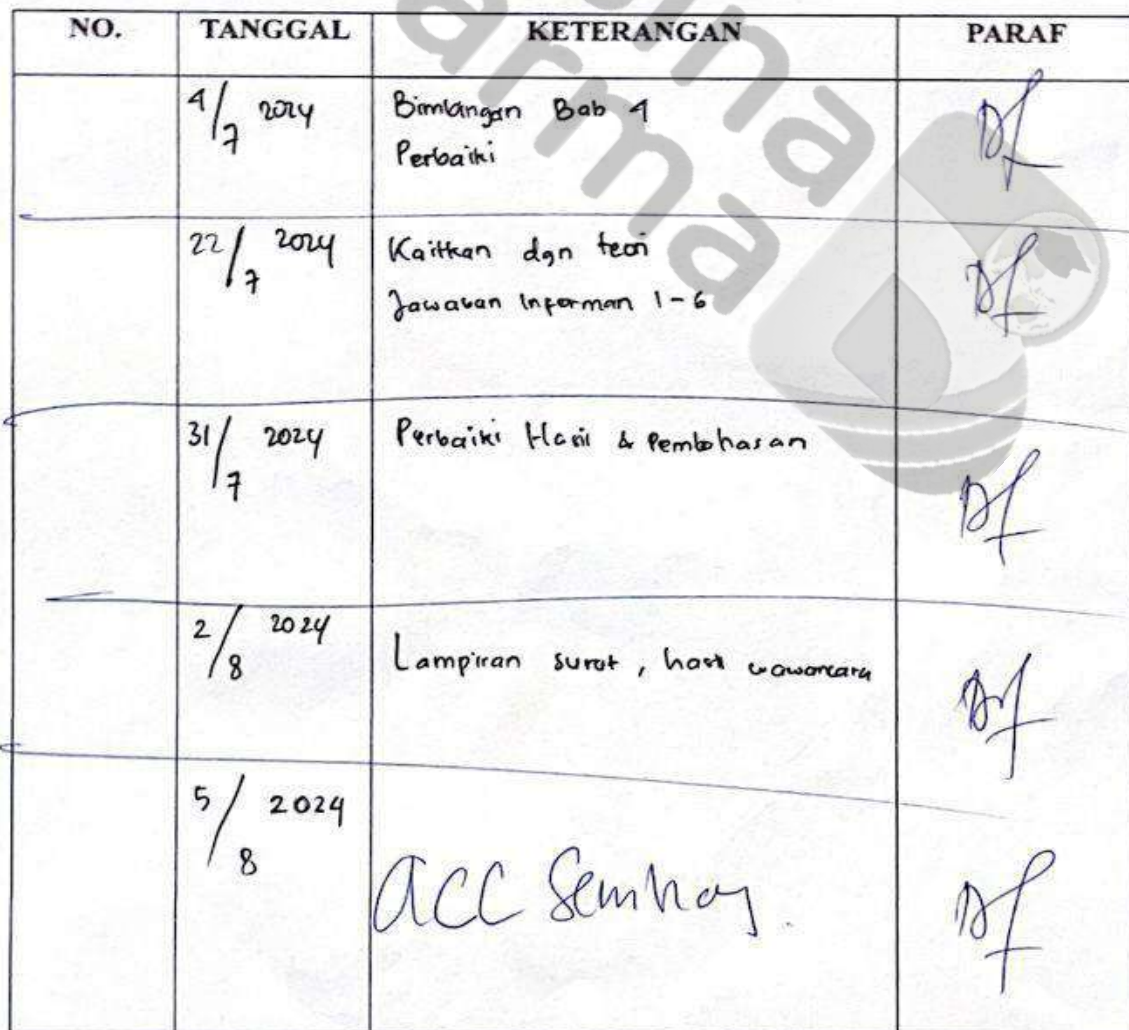 NO. TANGGAL KETERANGAN PARAF
4/7 2024 Bimbingan Bab 4
Perbaiki
22/7 2024 Kaitkan dgn teori
Jawaban Informan 1-6
31/7 2024 Perbaiki Hasil & Pembahasan
2/8 2024 Lampiran surat, hasil wawancara
5/8 2024
acc Semhas.